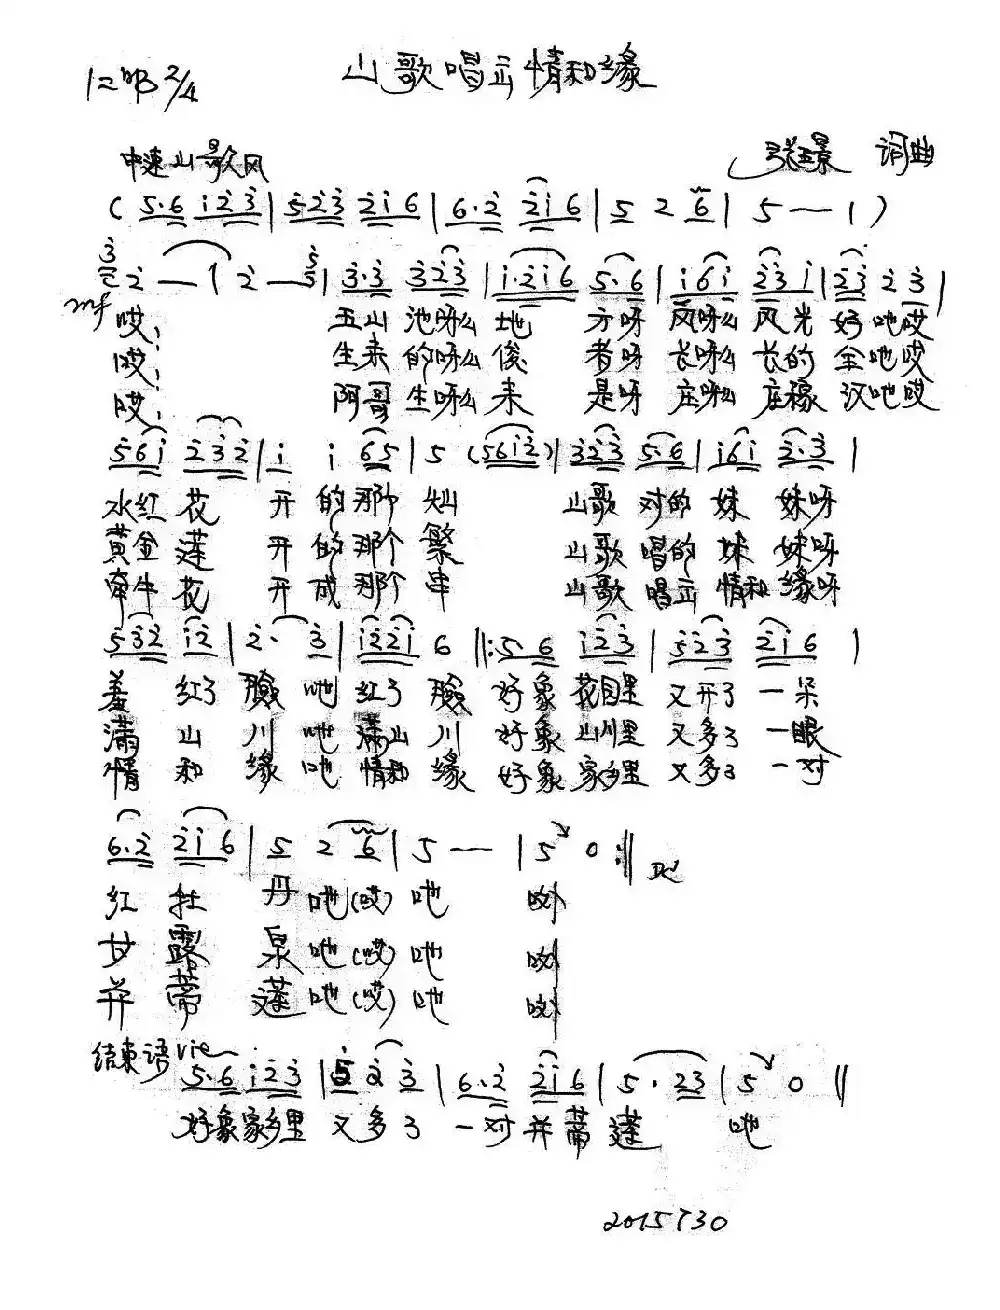 山歌唱云情和缘
1=ᵇB 2/4
中速山歌风
景 词曲
( 5.6 i 2 3 | 5 2 3 2 i 6 | 6.2 2 i 6 | 5 2 6 | 5 — | )
2 — | 2 — | 3.3 3 2 3 | i.2 i 6 5.6 | i 6 i 2 3 i | 2 3 2 3 |
mf
哎: 五山 池呀么 地 方呀 风呀么 风光 好 吔哎
哎: 生来 的呀么 俊 者呀 长呀么 长的 全 吔哎
哎: 阿哥 生呀么 来 是呀 庄呀么 庄稼 汉吔哎
5 6 i 2 3 2 | i i 6 5 | 5 (5 6 i 2) | 3 2 3 5.6 | i 6 i 2.3 |
水红 花 开 的 那个 灿 山歌 对的 妹 妹呀
黄金 莲 开 的 那个 繁 山歌 唱的 妹 妹呀
牵牛 花 开 成 那个 串 山歌 唱云 情和 缘呀
5 3 2 i 2 | 2. 3 | i 2 2 i 6 ‖: 5.6 i 2 3 | 5 2 3 2 i 6 |
羞 红了 脸 吔 红了 脸 好象 花园里 又开了 一朵
满 山 川 吔 满山 川 好象 山川里 又多了 一眼
情 和 缘 吔 情和 缘 好象 家乡里 又多了 一对
6.2 2 i 6 | 5 2 6 | 5 — | 5 0 :‖
红 牡 丹 吔 (哎) 吔
甘 露 泉 吔 (哎) 吔
并 蒂 莲 吔 (哎) 吔
结束语
5.6 i 2 3 | 5 2 3 | 6.2 2 i 6 | 5. 2 3 | 5 0 ‖
好象家乡里 又 多 了 一 对 并 蒂 莲 吔
2015730